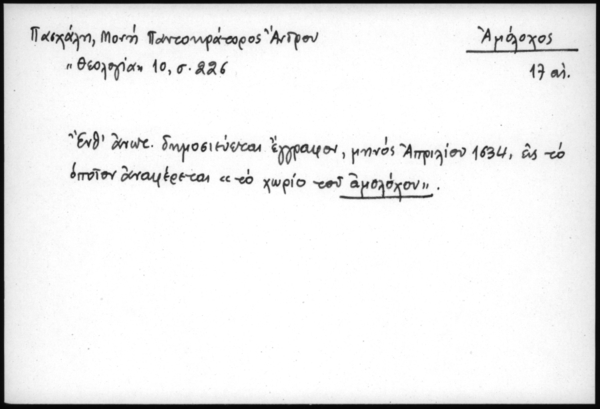 Πασχάλη, Μονή Παντοκράτορος Ἄνδρου
Ἀμόλοχος
"Θεολογία" 10, σ. 226
17 αἰ.
Ἔνθ' ἀνωτ. δημοσιεύεται ἔγγραφον, μηνός Ἀπριλίου 1634, εἰς τό
ὁποῖον ἀναφέρεται «τό χωρίο τοῦ ἀμολόχου».